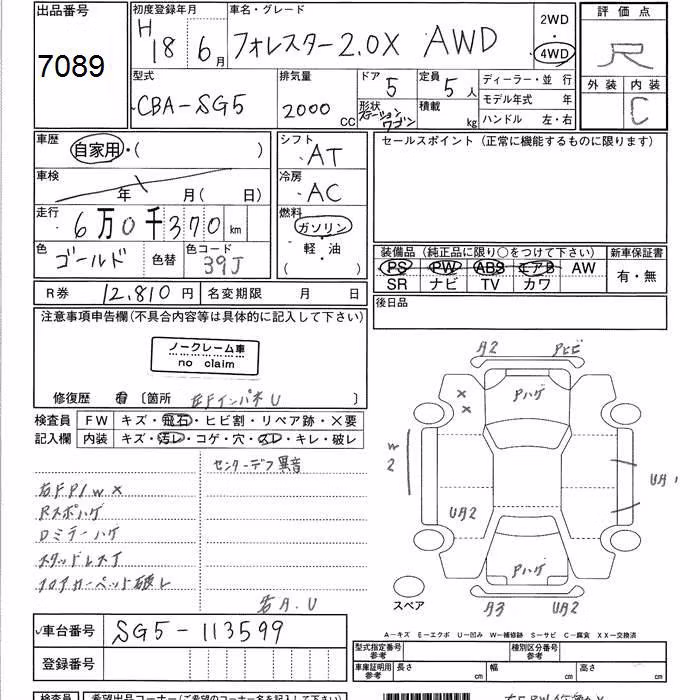 出品番号 初度登録年月 車名・グレード 2WD 評価点
7089 H 18 6月 フォレスター2.0X AWD 4WD R
型式 排気量 ドア 5 定員 5人 ディーラー・並 行 外装 内装
CBA-SG5 2000cc 形状 ステーションワゴン 積載 kg モデル年式 年 C
ハンドル 左・右
車歴 自家用・( ) シフト AT セールスポイント (正常に機能するものに限ります)
車検 年 月(日) 冷房 AC
走行 6万0千370km 燃料 ガソリン
軽・油
( )
色 ゴールド 色替 色コード 39J
装備品 (純正品に限り○をつけて下さい) 新車保証書
PS PW ABS エアB AW 有・無
SR ナビ TV カワ
R券 12,810円 名変期限 月 日 後日品
注意事項申告欄(不具合内容等は具体的に記入して下さい)
ノークレーム車
no claim
修復歴 有 〔箇所 右Fインパネ U
検査員 FW キズ・飛石・ヒビ割・リペア跡・×要
記入欄 内装 キズ・汚レ・コゲ・穴・スレ・キレ・破レ
センターデフ異音
右FP/W×
Rスポハゲ
Dミラーハゲ
スタッドレス
フロアカーペット破レ
右A.U
A2 Pヒビ
× ×
Pハゲ
W2
UA1
UA2
Pハゲ
スペア
A3 UA2
A-キズ E-エクボ U-凹み W-補修跡 S-サビ C-腐食 XX-交換済
車台番号 SG5-113599
型式指定番号 参考 種別区分番号 参考
登録番号 車庫証明用 参考 長さ cm 幅 cm 高さ cm
検査員 希望出品コーナー(ご希望のコーナー名を記入